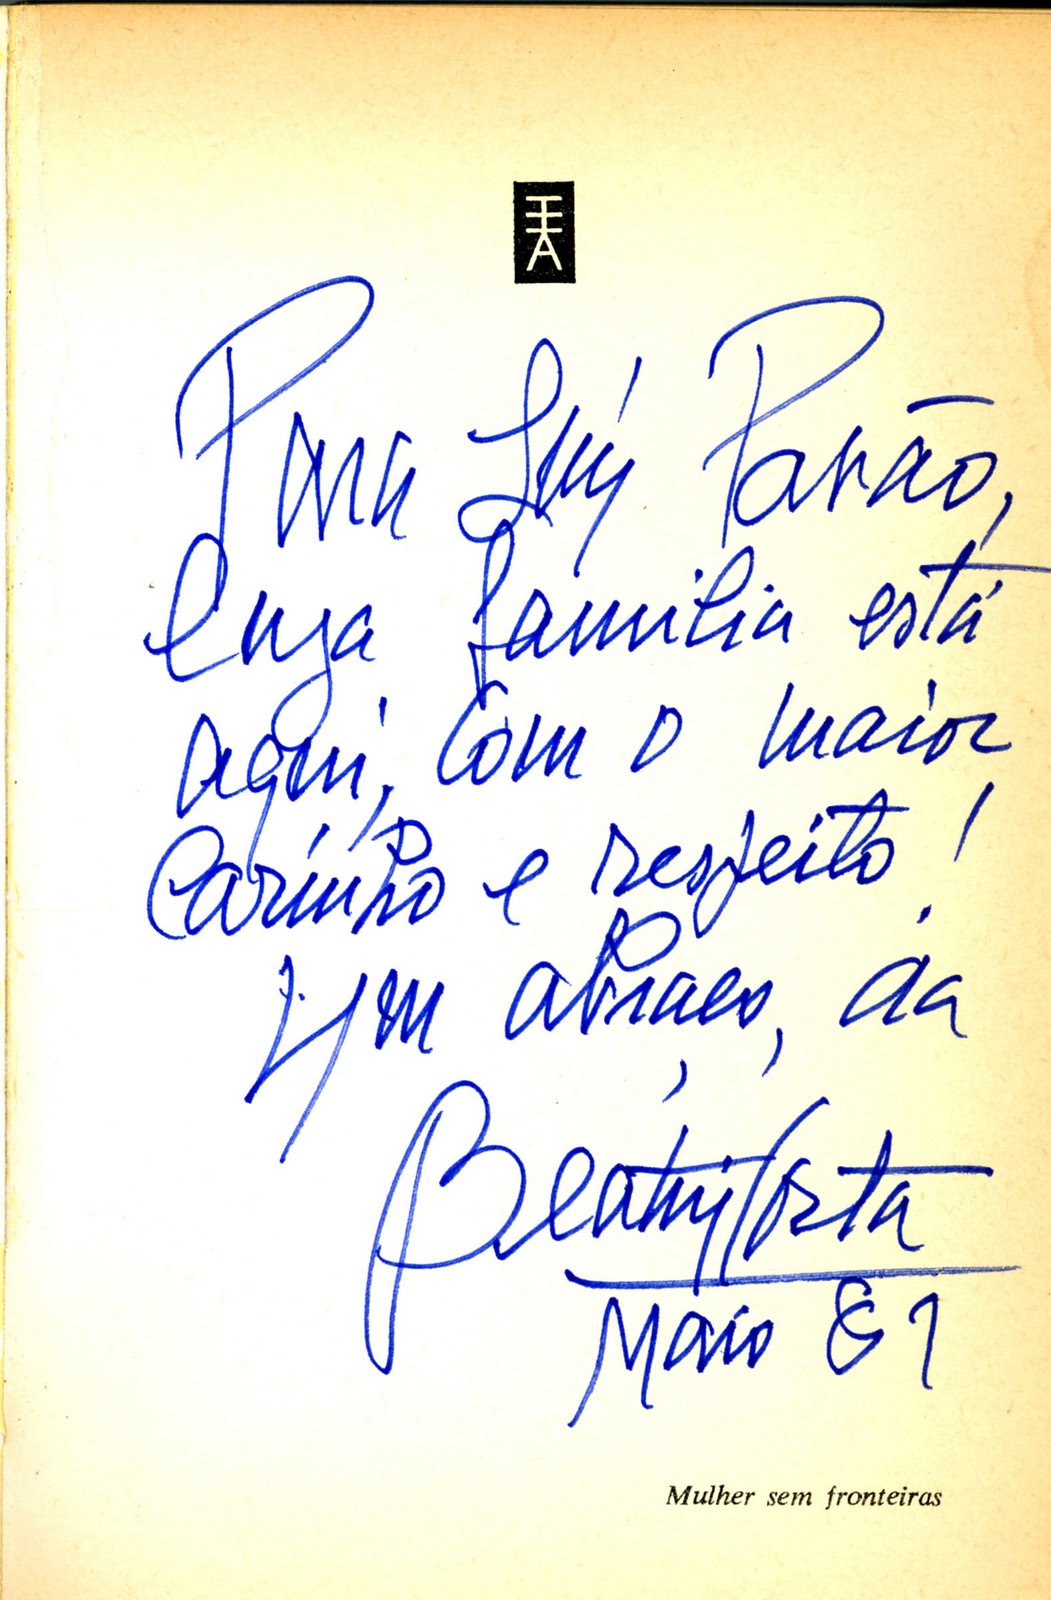 Para Luís Pavão,
cuja familia está
aqui, com o maior
carinho e respeito!
Um abraço, da
Beatriz Costa
Maio 81
Mulher sem fronteiras